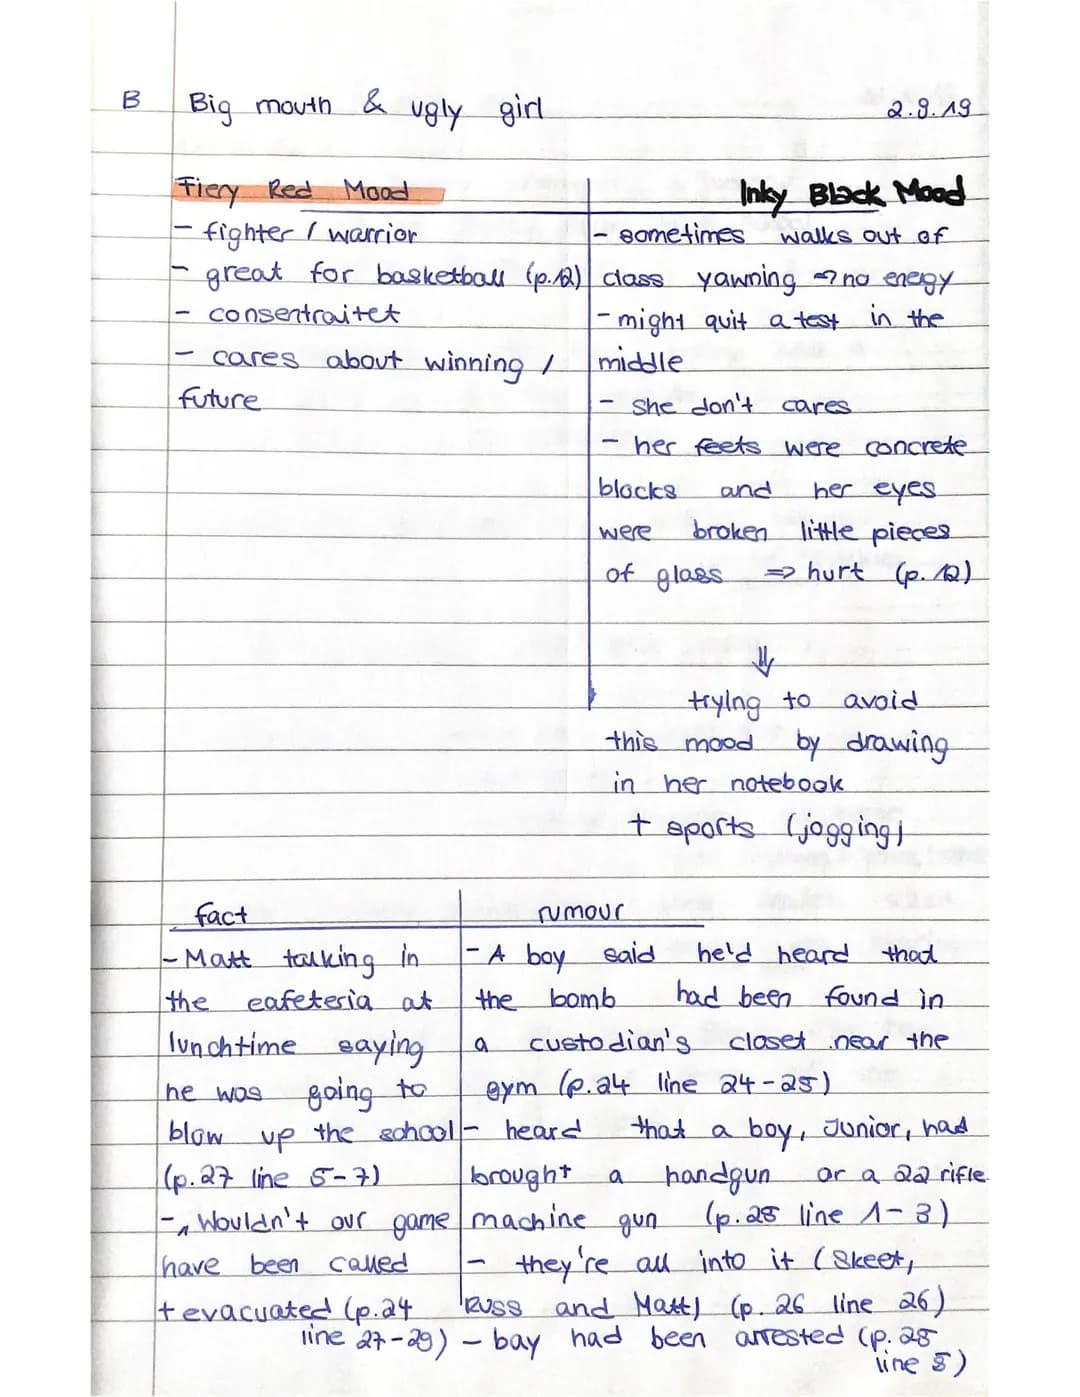 B Big mouth & ugly girl 2.9.19
Fiery Red Mood
- fighter / warrior
- great for basketball (p.12)
- consentraitet
- cares about winning /
future
Inky Black Mood
- sometimes walks out of
class yawning → no energy
- might quit a test in the
middle
- she don't cares
- her feets were concrete
blocks and her eyes
were broken little pieces
of glass => hurt (p. 12)
⇓
trying to avoid
this mood by drawing
in her notebook
+ sports (jogging)
fact
- Matt talking in
the cafeteria at
lunchtime saying
he was going to
blow up the school
(p.27 line 5-7)
- Wouldn't our game
have been called
+ evacuated (p.24
line 27-29)
rumour
- A boy said he'd heard that
the bomb had been found in
a custodian's closet near the
gym (p.24 line 24-25)
- heard that a boy, Junior, had
brought a handgun or a 22 rifle
machine gun (p.25 line 1-3)
- they're all into it (Skeet,
Russ and Matt) (p. 26 line 26)
- boy had been arrested (p. 25
line 5)